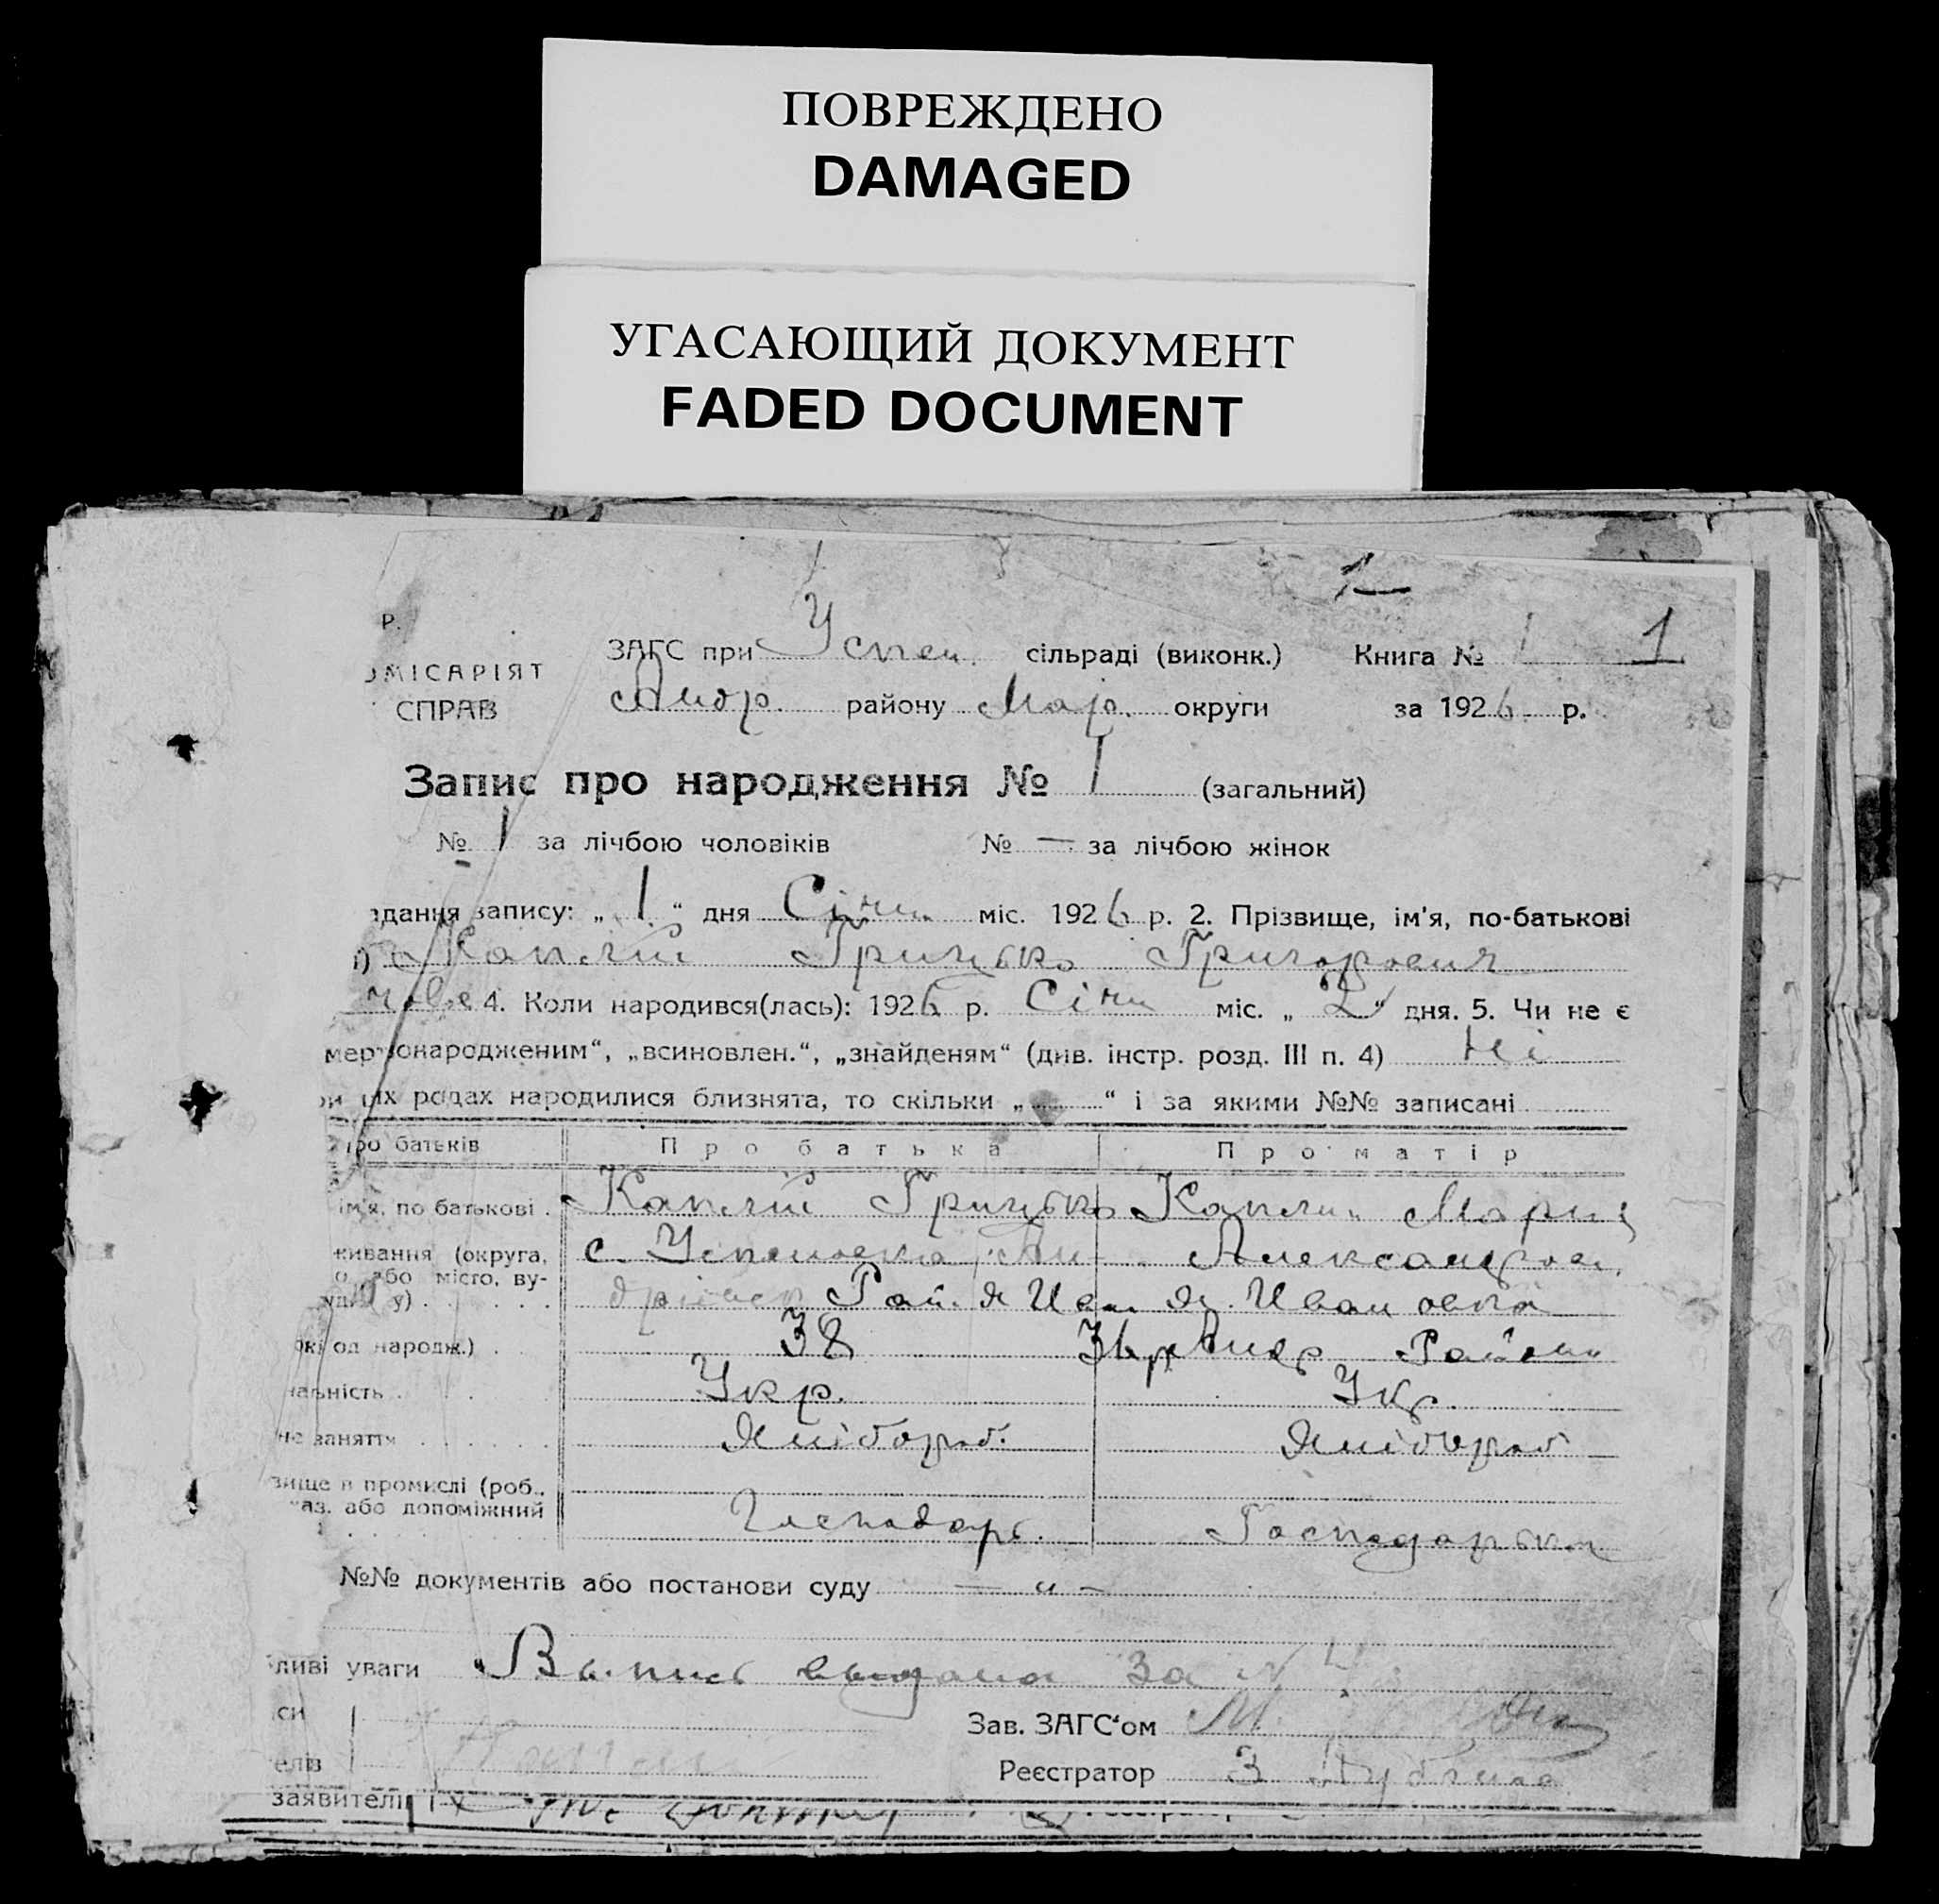 ПОВРЕЖДЕНО
DAMAGED
УГАСАЮЩИЙ ДОКУМЕНТ
FADED DOCUMENT
1
Р.
ОМІСАРІЯТ
СПРАВ
ЗАГС при Успен. сільраді (виконк.) Книга № 1 1
Андр. району Мар. округи за 1926 р.
Запис про народження № 1 (загальний)
№ 1 за лічбою чоловіків № — за лічбою жінок
адання запису: „ 1 “ дня Січн. міс. 1926 р. 2. Прізвище, ім'я, по-батькові
і) Каплій Грицько Григорович
чолов 4. Коли народився(лась): 1926 р. Січн міс. „ “ дня. 5. Чи не є
мертвонародженим“, „всиновлен.“, „знайденям“ (див. інстр. розд. III п. 4) Ні
ри ціх родах народилися близнята, то скільки „ “ і за якими №№ записані
про батьків Про батька Про матір
ім'я, по батькові . Каплій Грицько Каплій Марія
живання (округа, с. Успеновка Ан- Александров.
о, або місто, ву- дріївськ Рай. Иван овка
у) . . . . . .
ок од народж.) . . 38 Андр Району
альність . . . Укр. Укр.
не заняття . . . . . . Хлібороб. Хлібороб
вище в промислі (роб.,
аз. або допоміжний Господарь. Господарька
№№ документів або постанови суду — „ —
ливі уваги Выпись выдана за № 4
си
Зав. ЗАГС‘ом М.
елів
Реєстратор З
заявителі